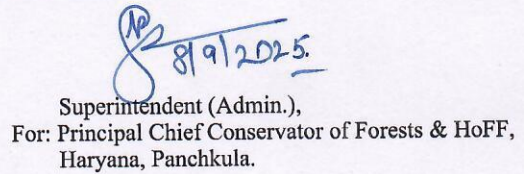 8/9/2025.
Superintendent (Admin.),
For: Principal Chief Conservator of Forests & HoFF,
Haryana, Panchkula.